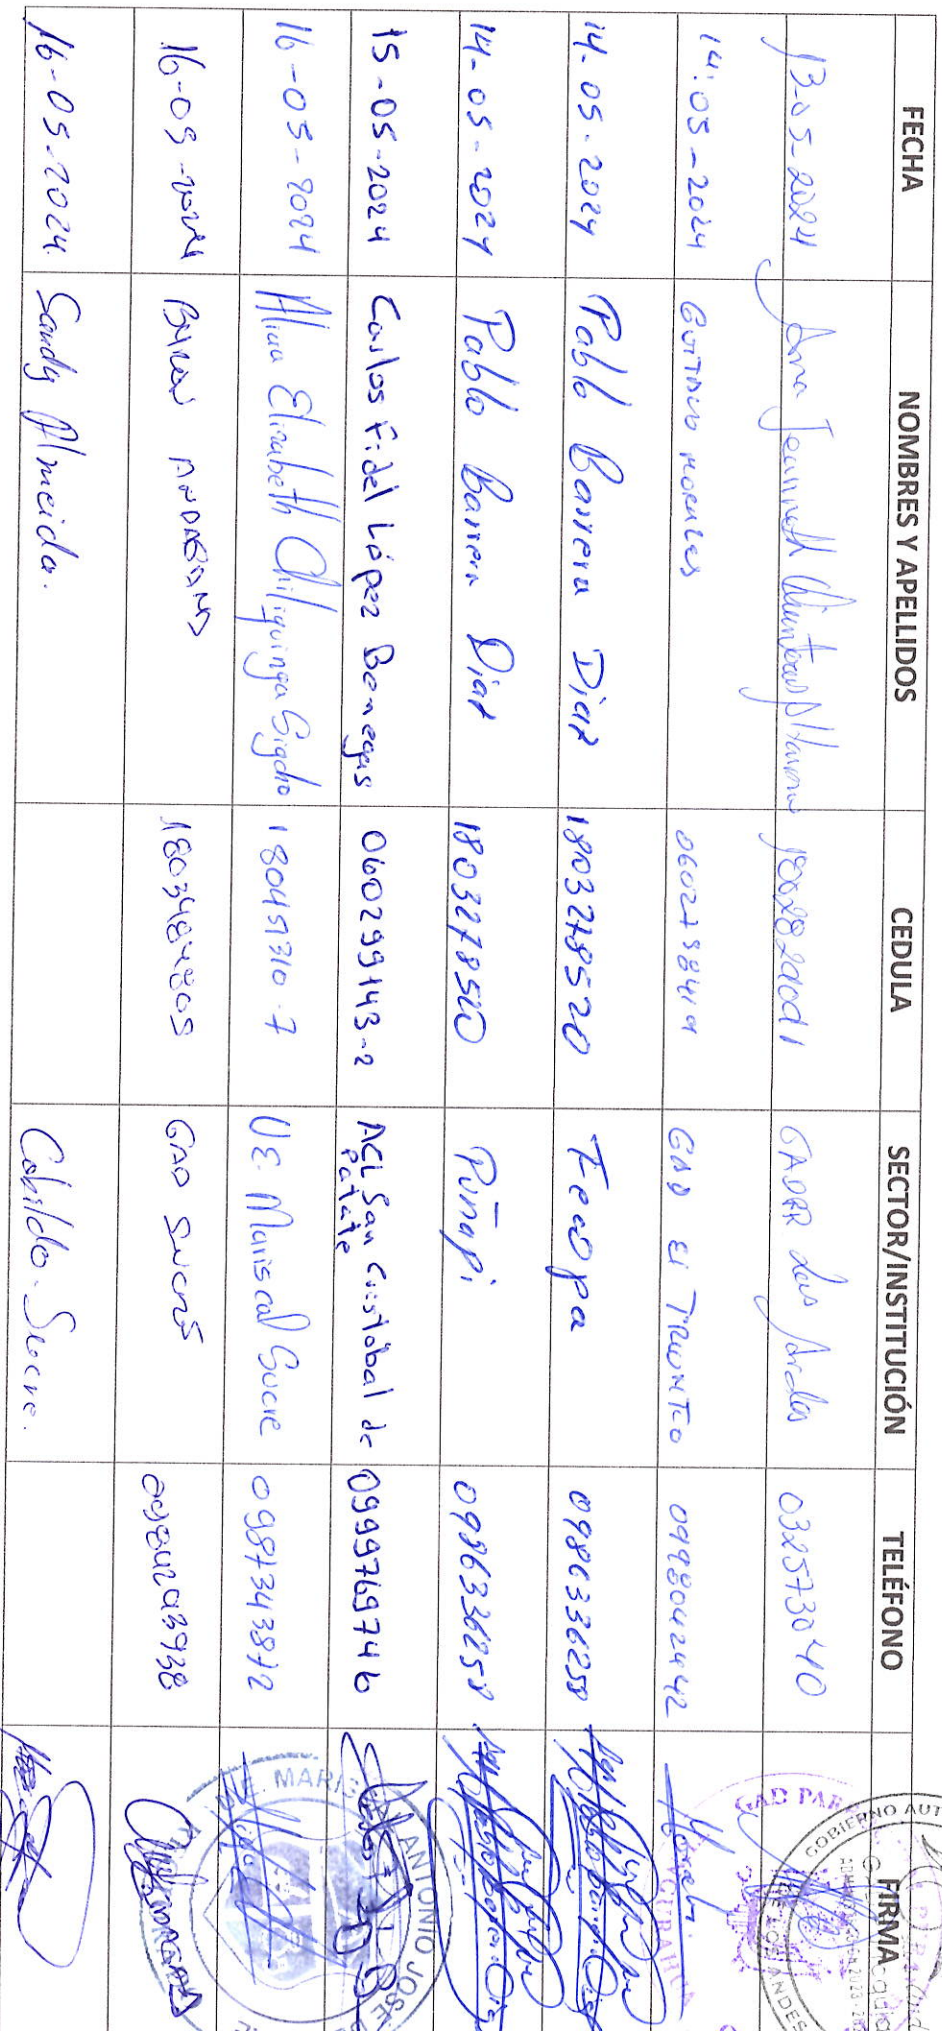 FECHA NOMBRES Y APELLIDOS CEDULA SECTOR/INSTITUCIÓN TELÉFONO FIRMA
13-05-2024 Ana Jeanneth 1802822001 GADPR Los Andes 032573040
14-05-2024 Morales GAD El Triunfo 0998042442
14-05-2024 Pablo Barrera Diaz 1803278520 0986336258
14-05-2024 Pablo Barrera Diaz 1803278520 Puñapi 0986336258
15-05-2024 Carlos Fidel López Benegas 060299143-2 ACL San Cristóbal de Patate 0999769746
16-05-2024 Elizabeth Chiliquinga Sigcho 180451310-7 U.E. Mariscal Sucre 0987343872
16-05-2024 GAD Sucre
16-05-2024. Sandy Almeida. Cabildo-Sucre.
GAD PAR
GOBIERNO AUT
ANDES
U.E. MARI
ANTONIO JOSE